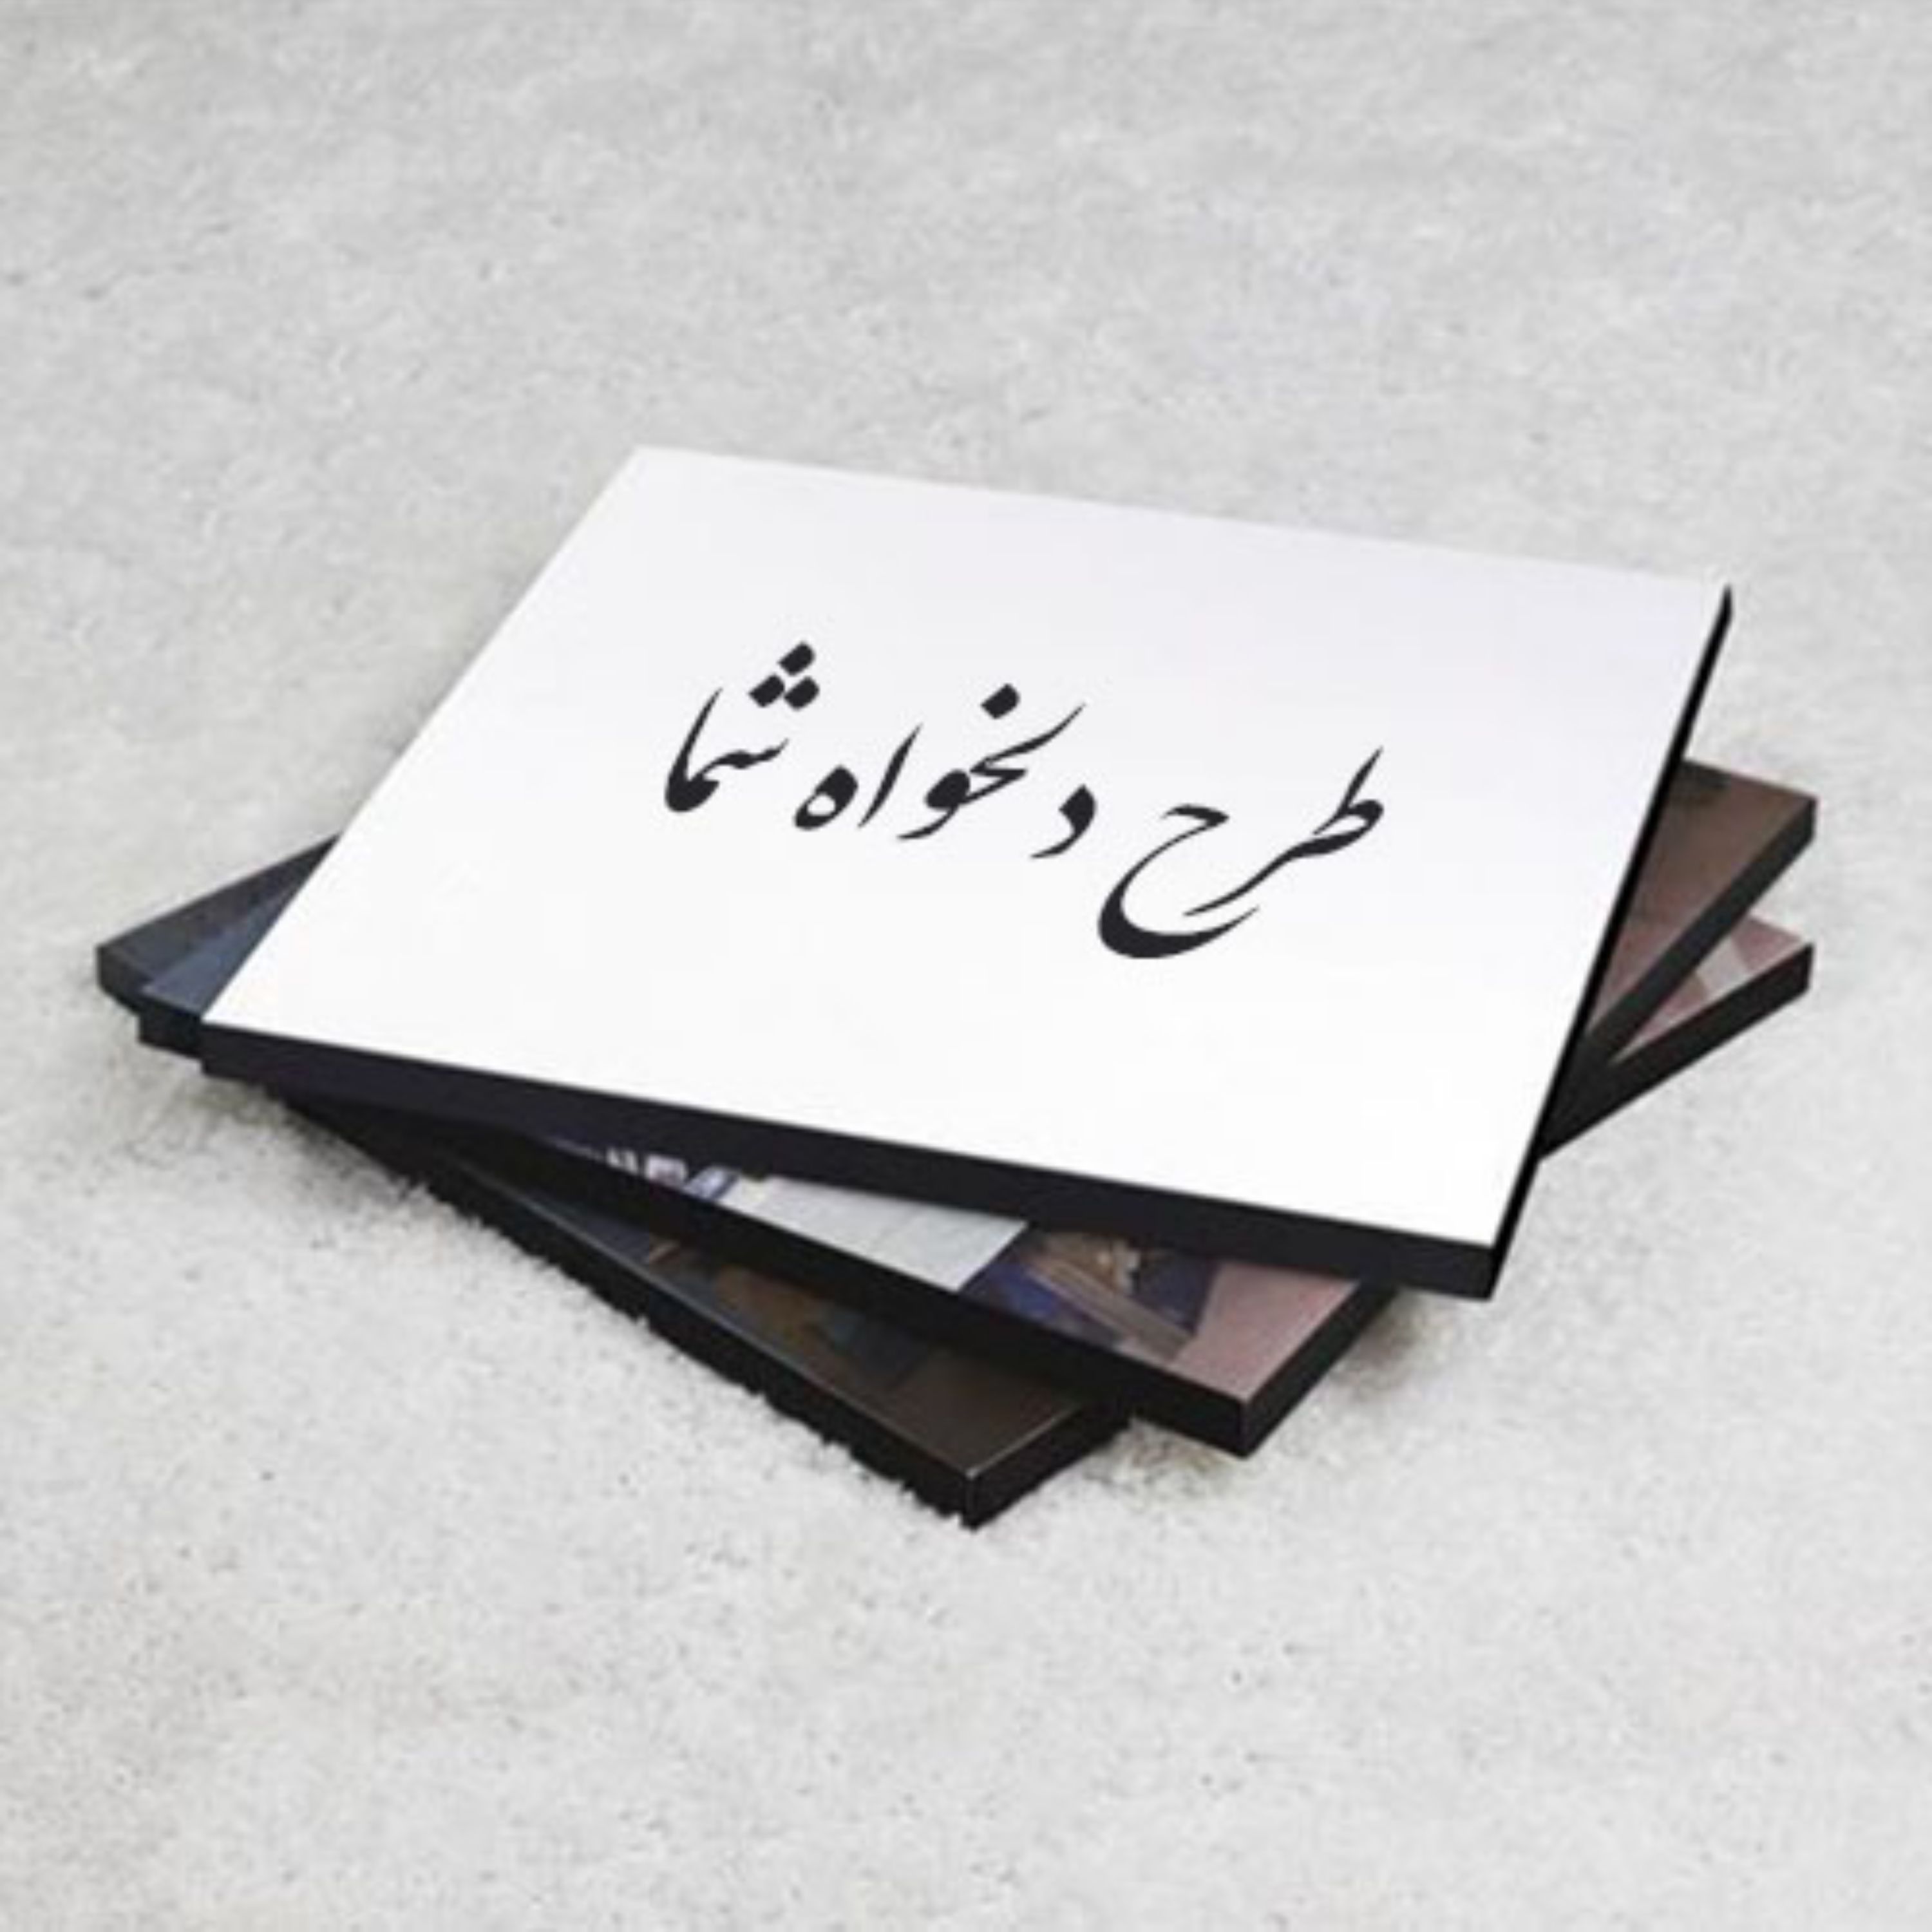 طرح دلخواه شما